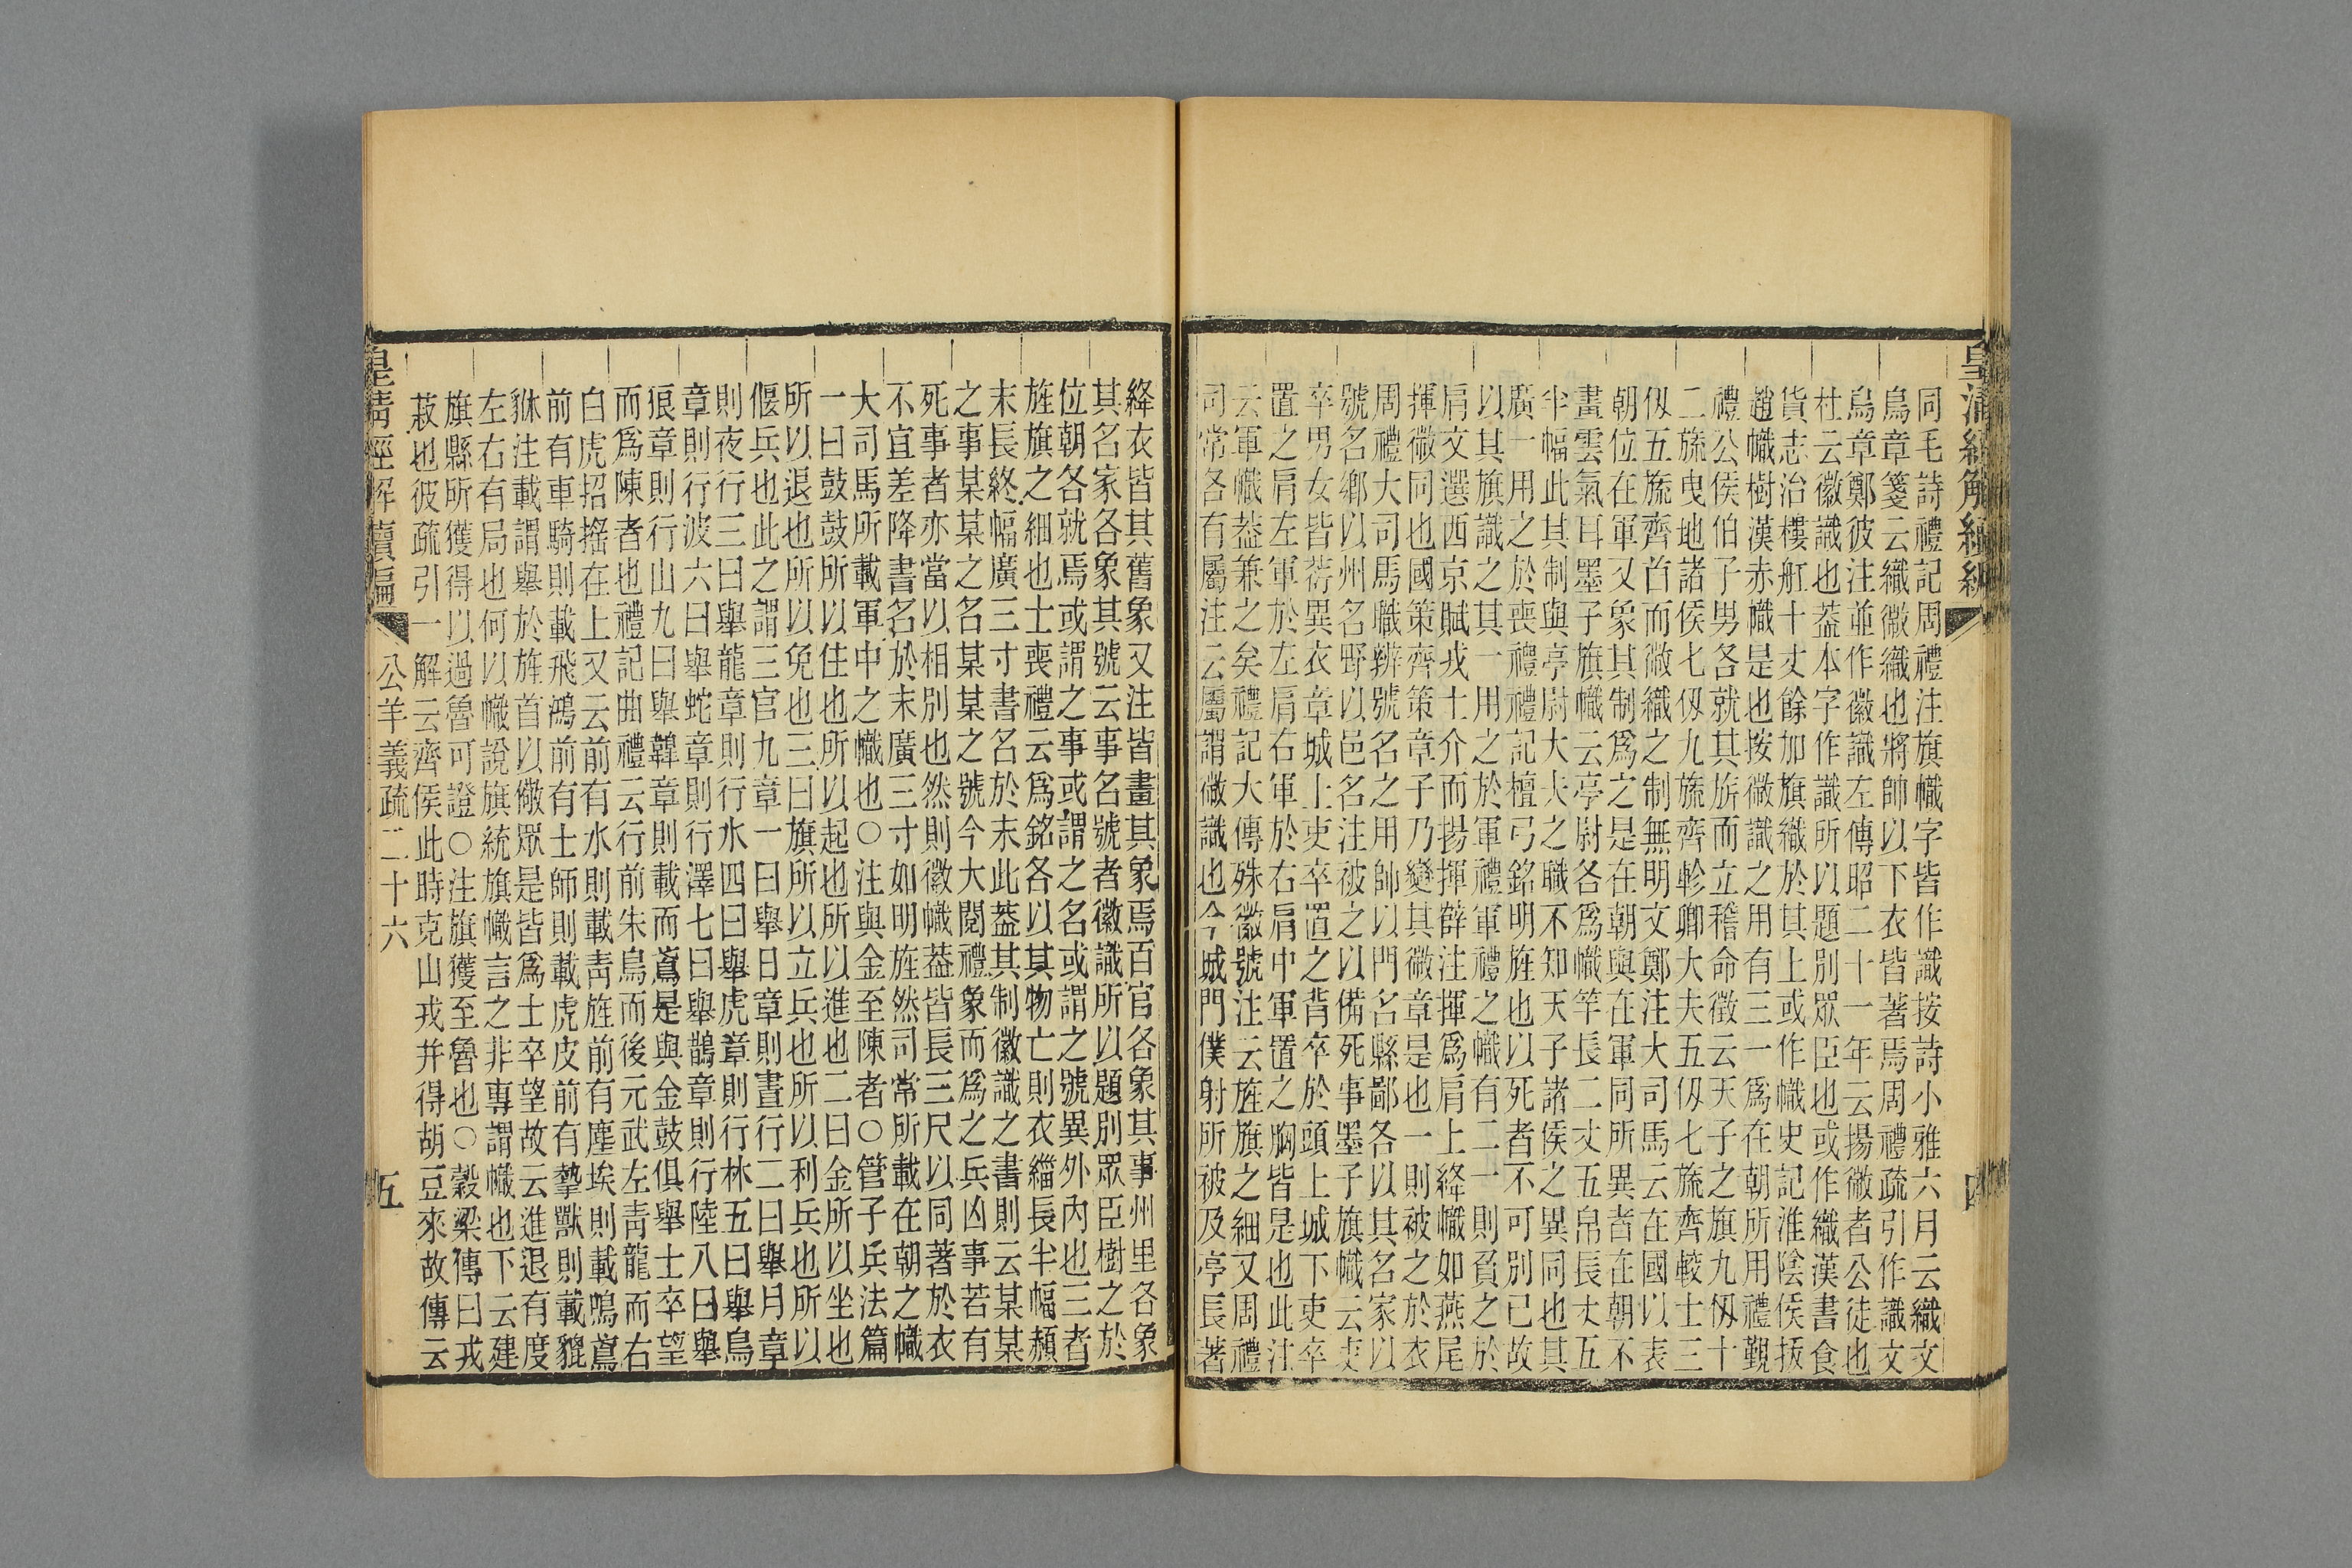 皇清經解續編
同毛詩禮記周禮注旗幟字皆作識按詩小雅六月云織文
鳥章箋云織徽織也將帥以下衣皆著焉周禮疏引作識文
鳥章鄭彼注並作徽識左傳昭二十一年云揚徽者公徒也
杜云徽識也葢本字作識所以題別眾臣也或作織漢書食
貨志治樓舡十丈餘加旗織於其上或作幟史記淮陰侯拔
趙幟樹漢赤幟是也按徽識之用有三一爲在朝所用禮覲
禮公侯伯子男各就其旂而立稽命徵云天子之旗九仭十
二旒曳地諸侯七仭九旒齊軫卿大夫五仭七旒齊較士三
仭五旒齊首而徽織之制無明文鄭注大司馬云在國以表
朝位在軍又象其制爲之是在朝與在軍同所異者在朝不
畫雲氣耳墨子旗幟云亭尉各爲幟竿長二丈五帛長丈五
半幅此其制與亭尉大夫之職不知天子諸侯之異同也其
廣一用之於喪禮禮記檀弓銘明旌也以死者不可別已故
以其旗識之其一用之於軍禮軍禮之幟有二一則負之於
肩文選西京賦戎士介而揚揮薛注揮爲肩上絳幟如燕尾
揮徽同也國策齊策章子乃變其徽章是也一則被之於衣
周禮大司馬職辨號名之用帥以門名縣鄙各以其名家以
號名鄉以州名野以邑名注被之以備死事墨子旗幟云吏
卒男女皆葕異衣章城上吏卒置之背卒於頭上城下吏卒
置之肩左軍於左肩右軍於右肩中軍置之胸皆是也此注
云軍幟葢兼之矣禮記大傳殊徽號注云旌旗之細又周禮
司常各有屬注云屬謂徽識也今城門僕射所被及亭長著
絳衣皆其舊象又注皆畫其象焉百官各象其事州里各象
其名家各象其號云事名號者徽識所以題別眾臣樹之於
位朝各就焉或謂之事或謂之名或謂之號異外內也三者
旌旗之細也士喪禮云爲銘各以其物亡則衣緇長半幅赬
末長終幅廣三寸書名於末此葢其制徽識之書則云某某
之事某某之名某某之號今大閱禮象而爲之兵凶事若有
死事者亦當以相別也然則徽幟葢皆長三尺以同著於衣
不宜差降書名於末廣三寸如明旌然司常所載在朝之幟
大司馬所載軍中之幟也○注與金至陳者○管子兵法篇
一曰鼓鼓所以住也所以起也所以進也二曰金所以坐也
所以退也所以免也三曰旗所以立兵也所以利兵也所以
偃兵也此之謂三官九章一曰舉日章則晝行二曰舉月章
則夜行三曰舉龍章則行水四曰舉虎章則行林五曰舉烏
章則行波六曰舉蛇章則行澤七曰舉鵲章則行陸八曰舉
狼章則行山九曰舉韟章則載而鳶是與金鼓俱舉士卒望
而爲陳者也禮記曲禮云行前朱鳥而後元武左青龍而右
白虎招搖在上又云前有水則載青旌前有塵埃則載鳴鳶
前有車騎則載飛鴻前有士師則載虎皮前有摯獸則載貔
貅注載謂舉於旌首以儆眾是皆爲士卒望故云進退有度
左右有局也何以幟說旗統旗幟言之非專謂幟也下云建
旗縣所獲得以過魯可證○注旗獲至魯也○穀梁傳曰戎
菽也彼疏引一解云齊侯此時克山戎并得胡豆來故傳云
皇清經解續編
公羊義疏二十六
五